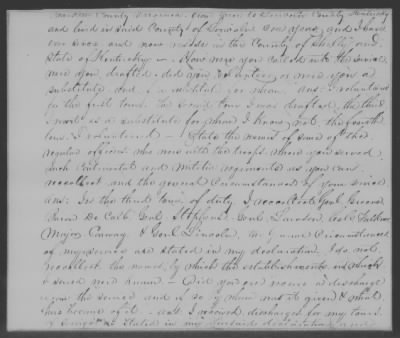 County Virginia from there to County Kentucky
and lived in said County of four years and I have
ever since and now reside in the County of Shelby and
State of Kentucky — How were you called into the service
were you drafted did you volunteer or were you a
substitute and if a substitute for whom. Ans: I volunteered
for the first tour. The second tour I was drafted, the third
I went as a substitute for whom I know not the fourth
tour I volunteered — State the names of some of the
regular officers who were with the troops where you served
such Continental and Militia regiments as you can
recollect and the general circumstances of your service
Ans: In the third tour of duty I recollect Genl Greene
Baron De Calb Genl Stephens Genl Lawson, Col
Major & Genl Lincoln. The circumstances
of my service are stated in my declaration. I do not
recollect the names by which the establishments in which
I served were known — Did you ever receive a discharge
from the service and if so by whom was it given & what
has become of it — Ans I received discharges for my tours
of as stated in my declaration and